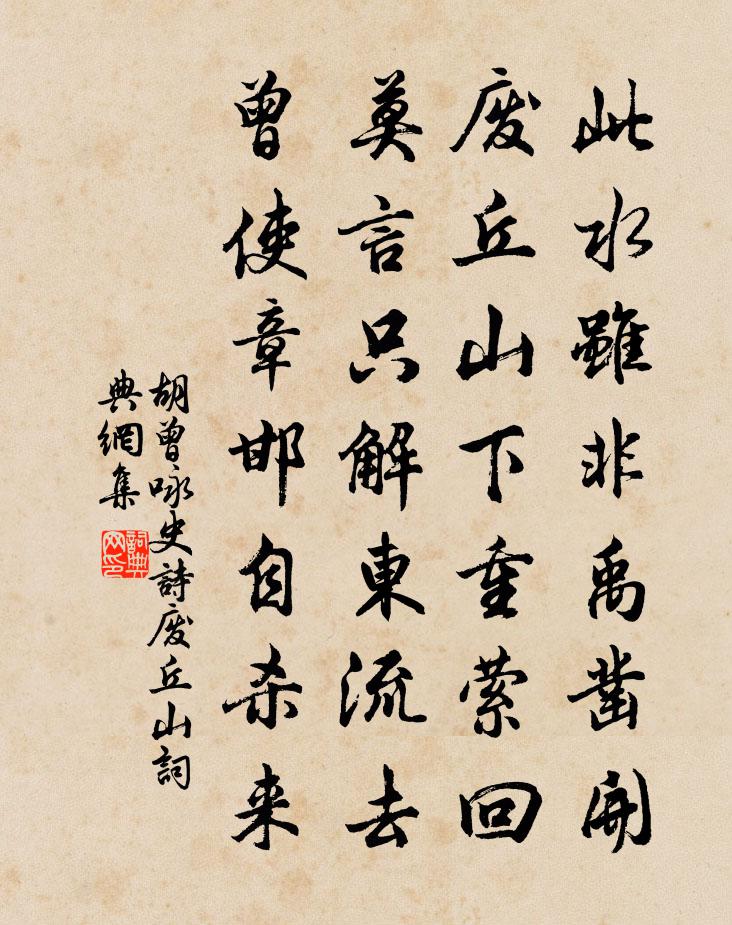 此水雖非禹鑿開
废丘山下重萦回
莫言只解東流去
曾使章邯自杀来
胡曾咏史詩废丘山詞
典網集
詞典
网印